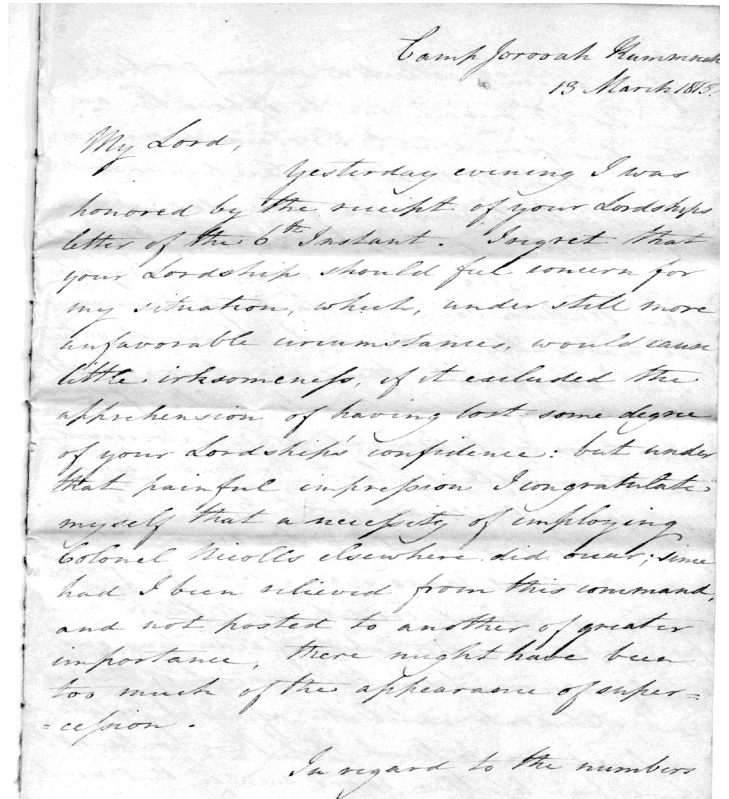 Camp Jorooah Kummneah
13 March 1815.
My Lord,
Yesterday evening I was
honored by the receipt of your Lordships
letter of the 6th Instant. I regret that
your Lordship should feel concern for
my situation, which, under still more
unfavorable circumstances, would cause
little irksomeness, if it excluded the
apprehension of having lost some degree
of your Lordship's confidence: but under
that painful impression I congratulate
myself that a necessity of employing
Colonel Nicolls elsewhere did occur; since
had I been relieved from this command,
and not posted to another of greater
importance, there might have been
too much of the appearance of super=
=cession.
In regard to the numbers